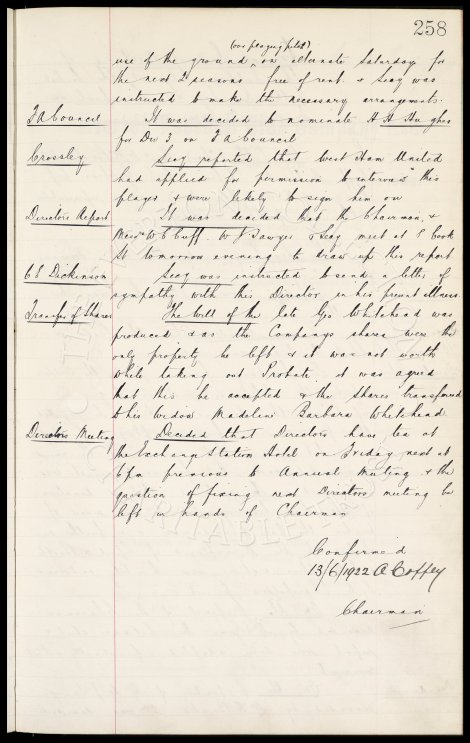 258
(our playing pitch)
use of the ground, on alternate Saturdays for
the next 2 seasons free of rent & Secy was
instructed to make the necessary arrangements.
F A Council It was decided to nominate A H Hughes
for Div 3 on F A Council
Crossley Secy reported that West Ham United
had applied for permission to interview this
player & were likely to sign him on
Directors Report It was decided that the Chairman, &
Messrs W C Cuff, W J Sawyer & Secy meet at 8 Cook
St tomorrow evening to draw up this report
C E Dickinson Secy was instructed to send a letter of
sympathy with this Director in his present illness.
Transfer of Shares The Will of the late Geo Whitehead was
produced & as the Companys shares were the
only property he left & it was not worth
while taking out Probate, it was agreed
that this be accepted & the shares transferred
to his widow Madeline Barbara Whitehead
Directors Meeting Decided that Directors have tea at
the Exchange Station Hotel on Friday next at
6pm previous to Annual Meeting & the
question of fixing next Directors meeting be
left in hands of Chairman
Confirmed
13/6/1922 A Coffey
Chairman